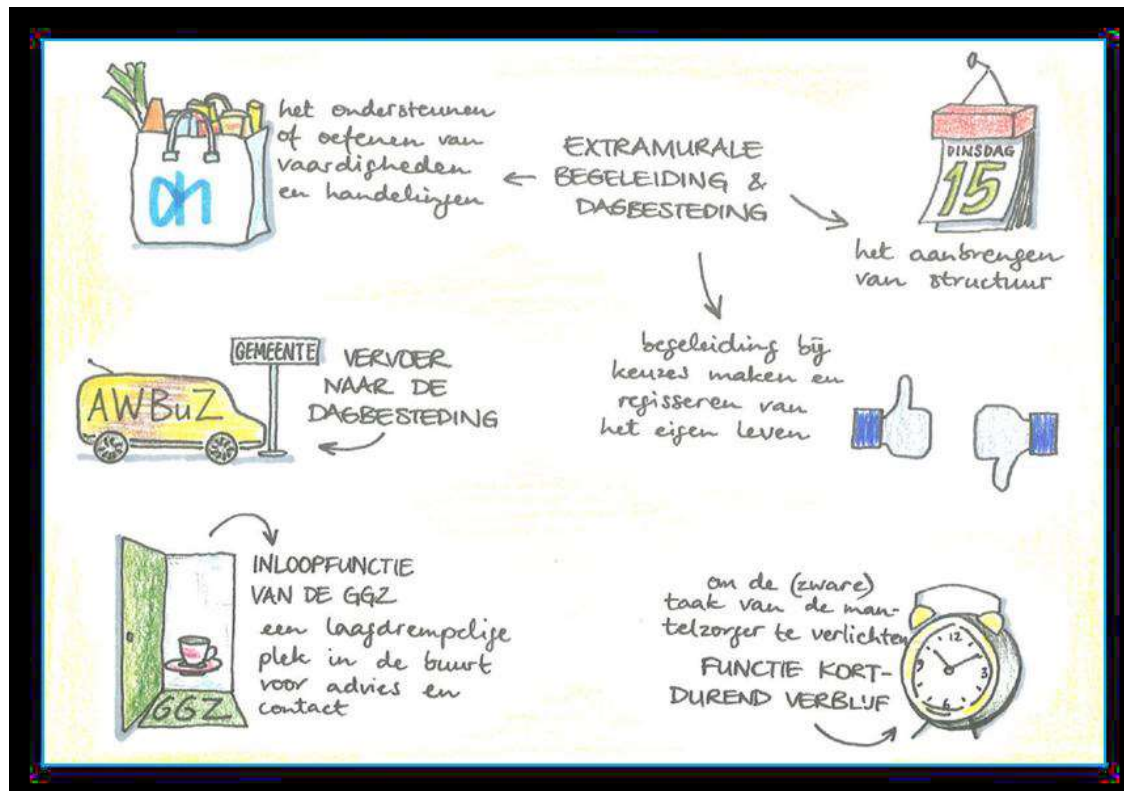 het ondersteunen
of oefenen van
vaardigheden
en handelingen
ah
EXTRAMURALE
BEGELEIDING &
DAGBESTEDING
DINSDAG
15
het aanbrengen
van structuur
GEMEENTE
AWBuZ
VERVOER
NAAR DE
DAGBESTEDING
begeleiding bij
keuzes maken en
regisseren van
het eigen leven
INLOOPFUNCTIE
VAN DE GGZ
een laagdrempelige
plek in de buurt
voor advies en
contact
GGZ
om de (zware)
taak van de man-
telzorger te verlichten
FUNCTIE KORT-
DUREND VERBLIJF
12
3
6
9